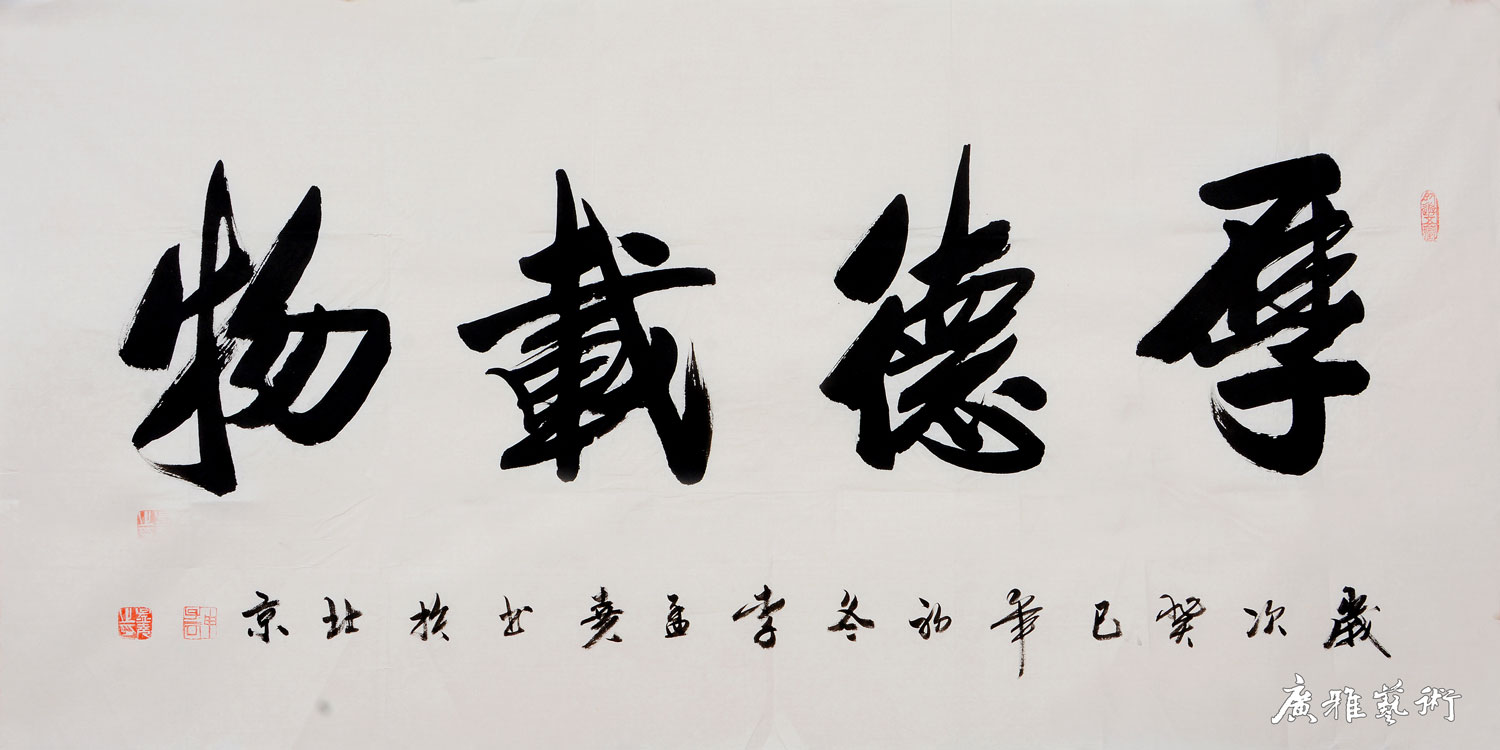 厚德載物
歲次癸巳年初冬李孟堯书於北京
廣雅藝術